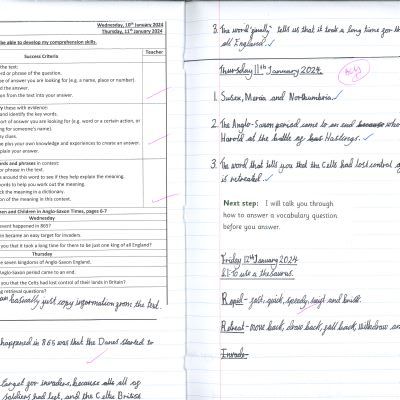 Wednesday, 10th January 2024
Thursday, 11th January 2024
be able to develop my comprehension skills.
Success Criteria
Teacher
the text:
rd or phrase of the question.
e of answer you are looking for (e.g. a name, place or number).
d the answer.
on from the text into your answer.
y these with evidence:
and identify the key words.
ort of answer you are looking for (e.g. word or a certain action, or
ing for someone's name).
y clues.
e plus your own knowledge and experiences to create an answer.
plain your answer.
rds and phrases in context:
or phrase in the text.
s around this word to see if they help explain the meaning.
ords to help you work out the meaning.
ck the meaning in a dictionary.
on of the meaning in this context.
en and Children in Anglo-Saxon Times, pages 6-7
Wednesday
event happened in 865?
n became an easy target for invaders.
you that it took a long time for there to be just one king of all England?
Thursday
e seven kingdoms of Anglo-Saxon England.
Anglo-Saxon period came to an end.
you that the Celts had lost control of their lands in Britain?
ng retrieval questions?
basically just copy information from the text.
happened in 865 was that the Danes started to
target for invaders, because all of
soldiers had left, and the Celtic British
3. The word "finally" tells us that it took a long time for th
all England.
Thursday 11th January 2024
1. Sussex, Mercia and Northumbria.
2. The Anglo-Saxon period came to an end
Harold at the battle of Hastings.
3. The word that tells you that the Celts had lost control
is retreated.
Next step: I will talk you through
how to answer a vocabulary question
before you answer.
Friday 12th January 2024
LI-to use a thesaurus.
Rapid - fast, quick, speedy, swift and brisk.
Retreat - move back, draw back, fall back, withdraw an
Invade